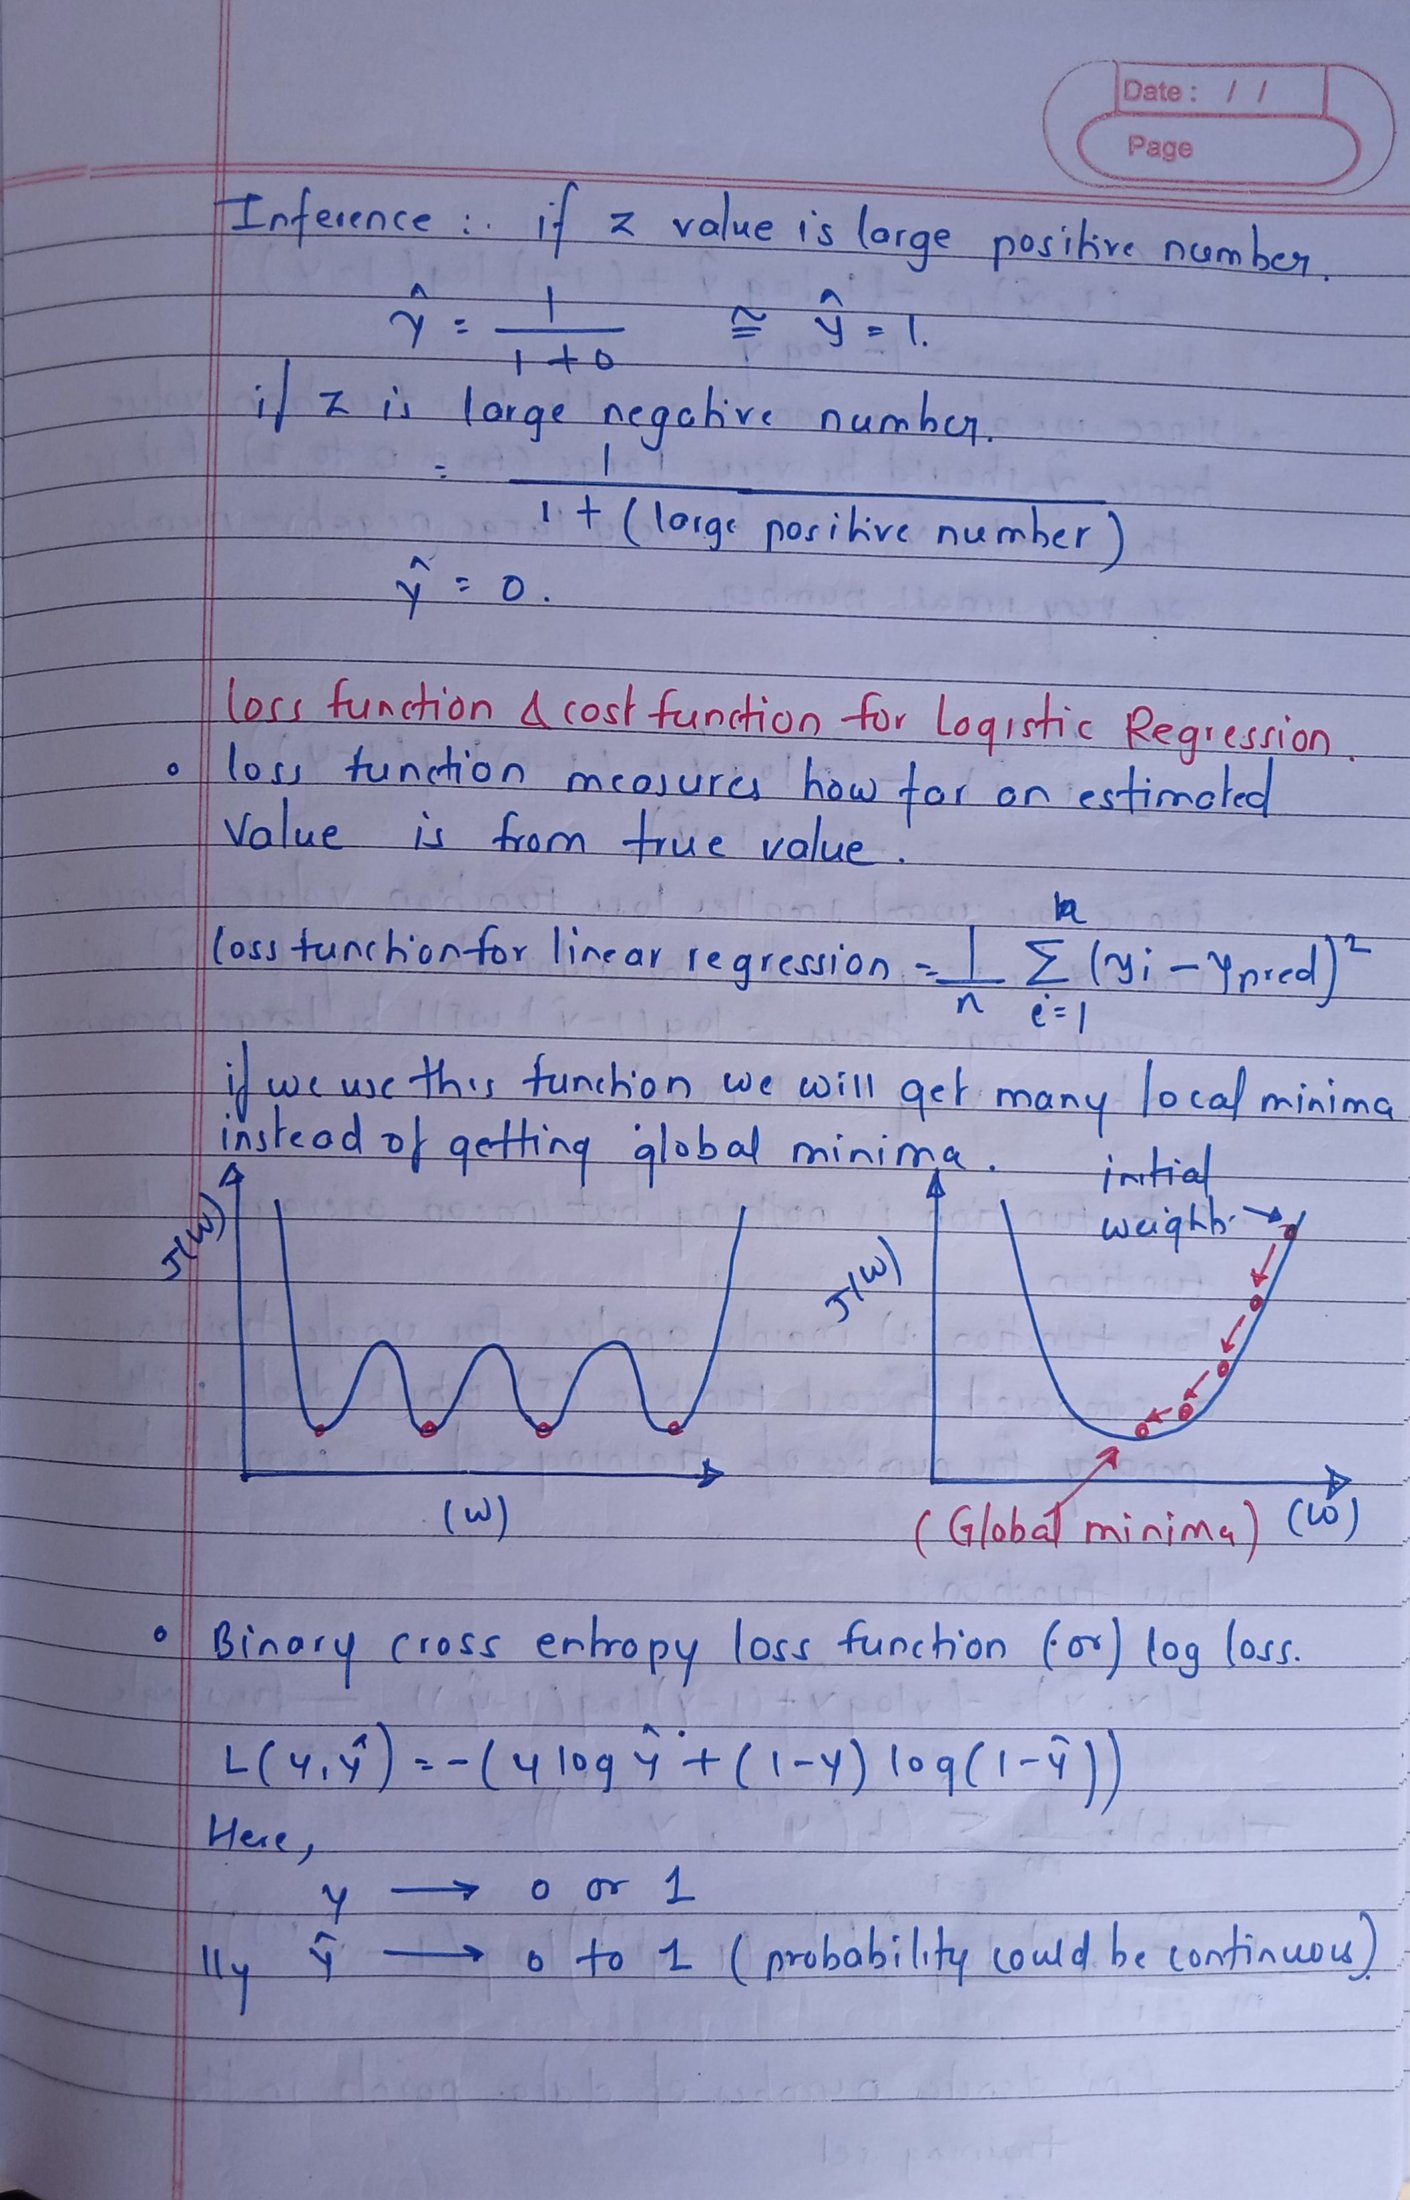 Date : / /
Page
Inference :. if z value is large positive number.
ŷ = 1 / 1 + 0 ≅ ŷ = 1.
if z is large negative number.
= 1 / 1 + (large positive number)
ŷ = 0.
loss function & cost function for Logistic Regression.
• loss function measures how far an estimated
Value is from true value.
loss function for linear regression = 1/n Σ i=1 n (yi - ypred)²
if we use this function we will get many local minima
instead of getting global minima.
initial
weights
J(w)
J(w)
(w)
(Global minima) (w)
• Binary cross entropy loss function (or) log loss.
L(y,ŷ) = -(y log ŷ + (1-y) log(1-ŷ))
Here,
y → 0 or 1
lly ŷ → 0 to 1 (probability could be continuous).